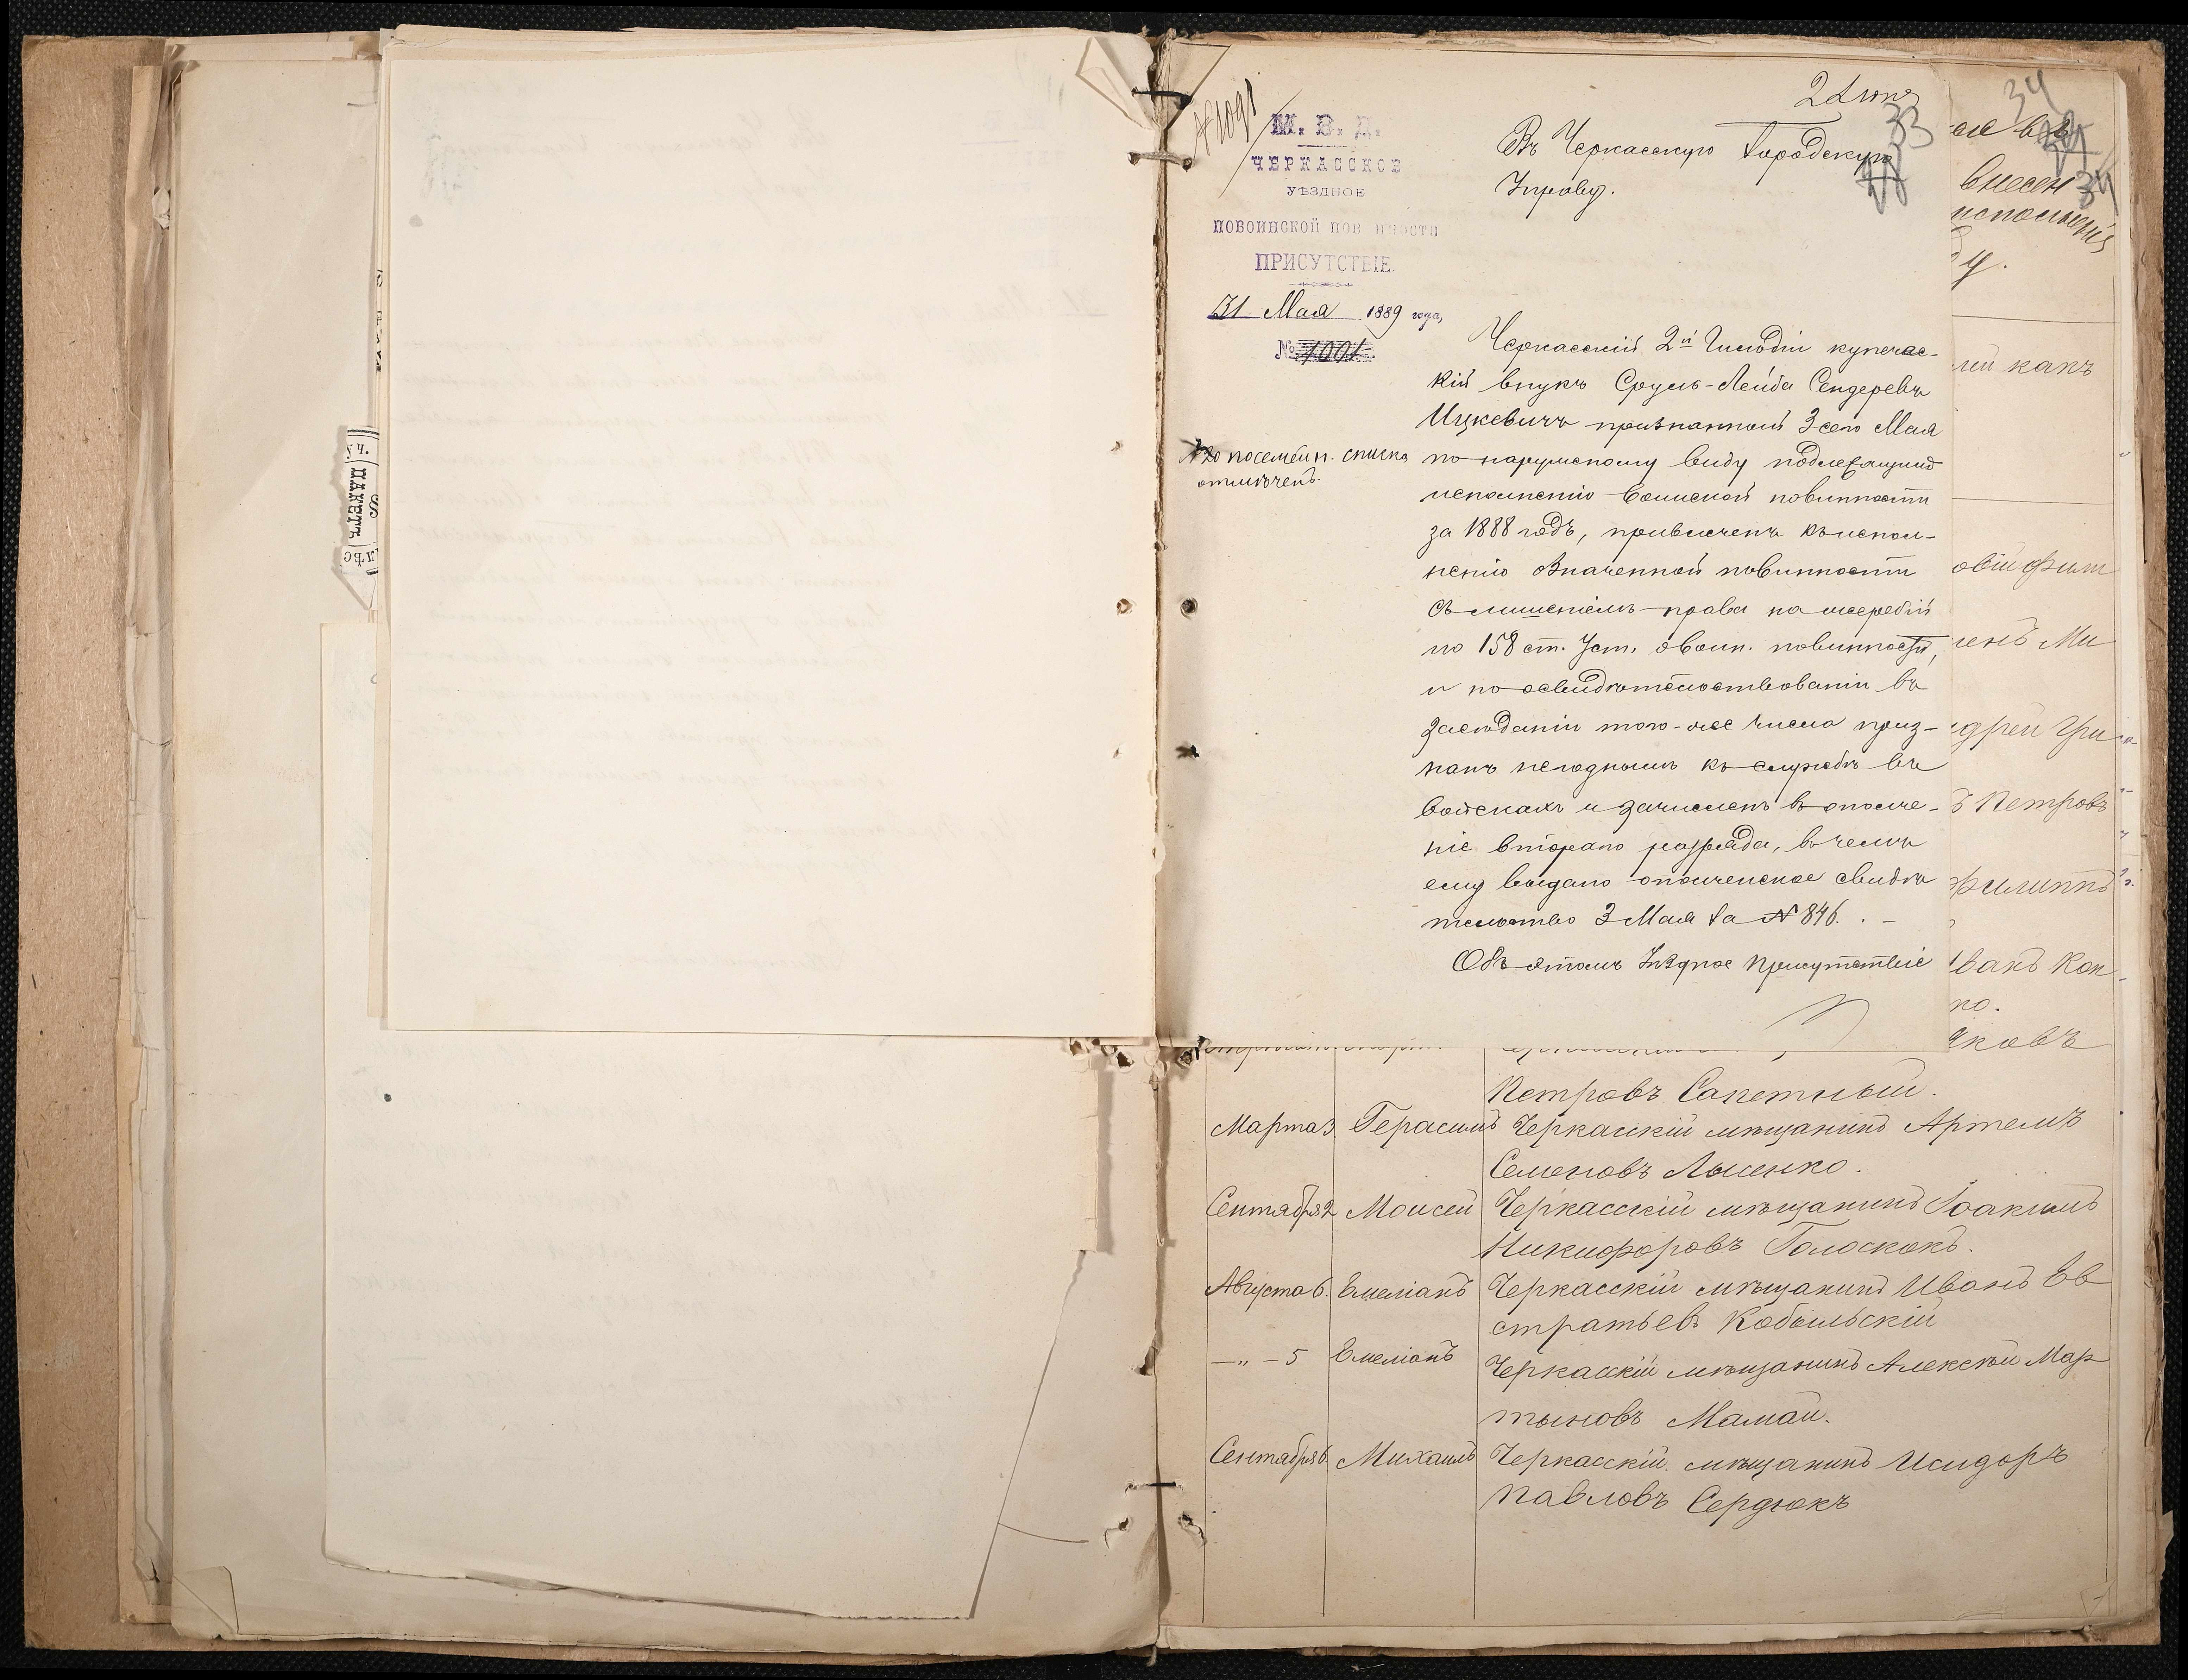 № 1091
М. В. Д.
ЧЕРКАССКОЕ
УѢЗДНОЕ
ПОВОИНСКОЙ ПОВИННОСТИ
ПРИСУТСТВІЕ.
31 Мая 1889 года,
№ 1001.
2 Іюня
33
Въ Черкасскую Городскую
Управу.
Черкасскій 2й Гильдіи купечес-
кій внукъ Сруль-Лейба Сендеревъ
Ицкевичъ признанный 3 сего Мая
по наружному виду подлежащимъ
исполненію воинской повинности
за 1888 годъ, привлеченъ къ испол-
ненію означенной повинности
съ лишеніемъ права на жеребій
по 158 ст. Уст. о воин. повинности,
и по освидѣтельствованіи въ
засѣданіи того-же числа приз-
нанъ негоднымъ къ службѣ въ
войскахъ и зачисленъ въ ополче-
ніе втораго разряда, въ чемъ
ему выдано ополченское свидѣ
тельство 3 Мая за № 846. -
Объ этомъ Уѣздное Присутствіе
№ 20 посемейн. списка
отмѣченъ.
34
внесен
34
ли какъ
овій Фили
ленъ Ми
дрей Гри
ъ Петровъ
Филиппъ
Иванъ Кон
ко.
Яковъ
Петровъ Сапетный.
Марта 3. Герасимъ Черкасскій мѣщанинъ Артемъ
Семеновъ Лысенко.
Сентября 2 Моисей Черкасскій мѣщанинъ Іоакимъ
Никифоровъ Голоскокъ.
Августа 6. Емеліанъ Черкасскій мѣщанинъ Иванъ Ев
стратьевъ Кобыльскій
—„— 5 Емеліанъ Черкасскій мѣщанинъ Алексѣй Мар
тыновъ Мамай.
Сентября 6. Михаилъ Черкасскій мѣщанинъ Исидоръ
Павловъ Сердюкъ
ПАКЕТЪ